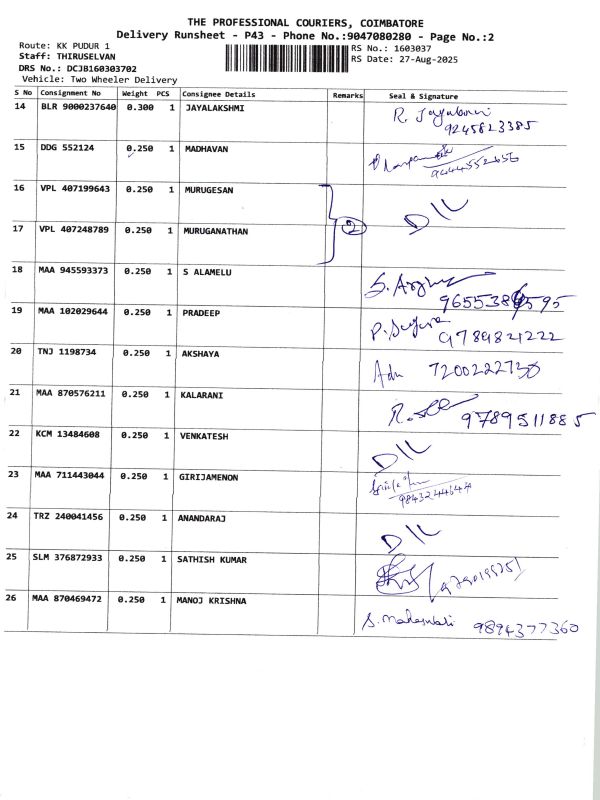 THE PROFESSIONAL COURIERS, COIMBATORE
Delivery Runsheet - P43 - Phone No.:9047080280 - Page No.:2
Route: KK PUDUR 1
RS No.: 1603037
Staff: THIRUSELVAN
RS Date: 27-Aug-2025
DRS No.: DCJB160303702
Vehicle: Two Wheeler Delivery
S No Consignment No Weight PCS Consignee Details Remarks Seal & Signature
14 BLR 9000237640 0.300 1 JAYALAKSHMI R. Jayalaxmi
9245823385
15 DDG 552124 0.250 1 MADHAVAN
16 VPL 407199643 0.250 1 MURUGESAN
2 D/L
17 VPL 407248789 0.250 1 MURUGANATHAN
18 MAA 945593373 0.250 1 S ALAMELU
19 MAA 102029644 0.250 1 PRADEEP
9789821222
20 TNJ 1198734 0.250 1 AKSHAYA
7200222730
21 MAA 870576211 0.250 1 KALARANI
9789511885
22 KCM 13484608 0.250 1 VENKATESH D/L
23 MAA 711443044 0.250 1 GIRIJAMENON
24 TRZ 240041456 0.250 1 ANANDARAJ D/L
25 SLM 376872933 0.250 1 SATHISH KUMAR
26 MAA 870469472 0.250 1 MANOJ KRISHNA
S. Maheswari 9894377360